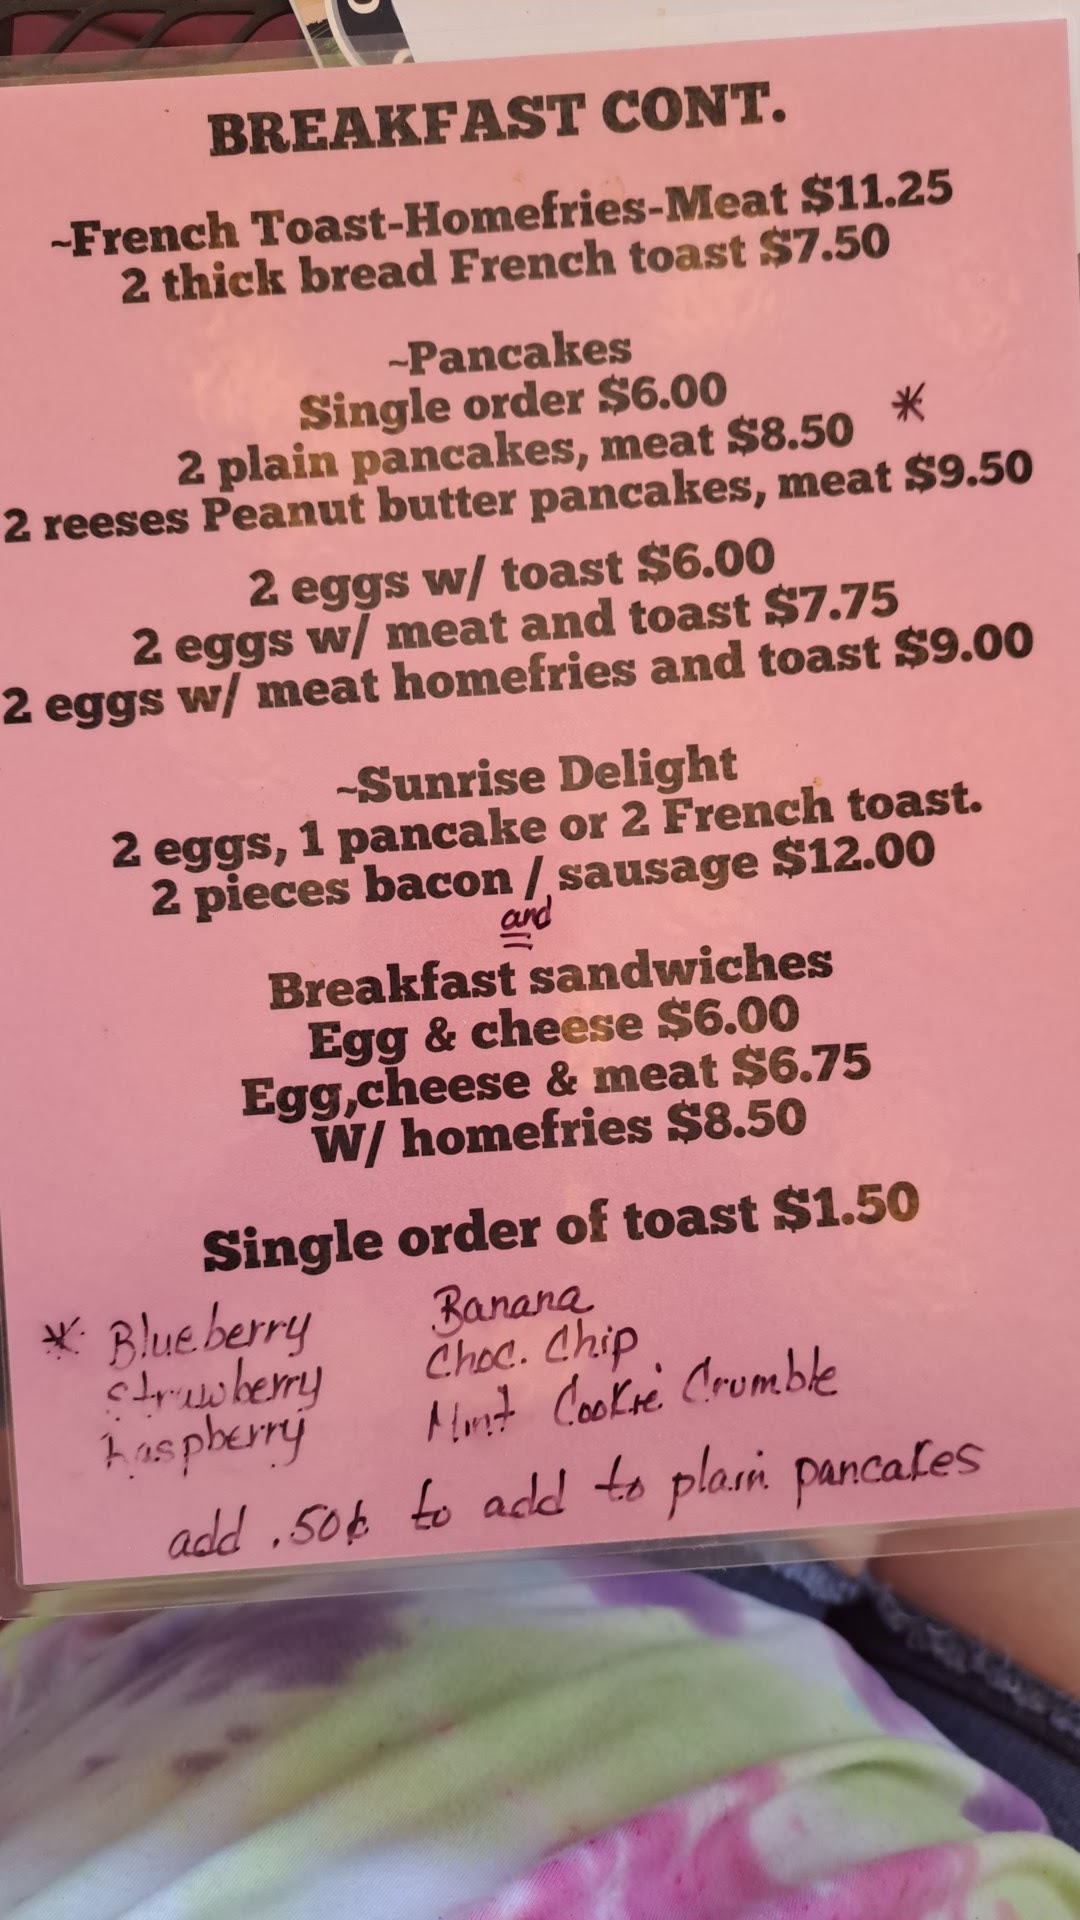 BREAKFAST CONT.
~French Toast-Homefries-Meat $11.25
2 thick bread French toast $7.50
~Pancakes
Single order $6.00
2 plain pancakes, meat $8.50 *
2 reeses Peanut butter pancakes, meat $9.50
2 eggs w/ toast $6.00
2 eggs w/ meat and toast $7.75
2 eggs w/ meat homefries and toast $9.00
~Sunrise Delight
2 eggs, 1 pancake or 2 French toast.
2 pieces bacon / sausage $12.00
and
Breakfast sandwiches
Egg & cheese $6.00
Egg,cheese & meat $6.75
W/ homefries $8.50
Single order of toast $1.50
* Blueberry Banana
Strawberry Choc. Chip
Raspberry Mint Cookie Crumble
add .50¢ to add to plain pancakes